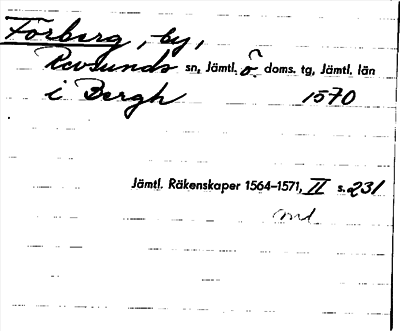 Förberg, by,
Revsunds sn, Jämtl. ö doms. tg, Jämtl. län
i Bergh 1570
Jämtl. Räkenskaper 1564–1571, II s. 231
md